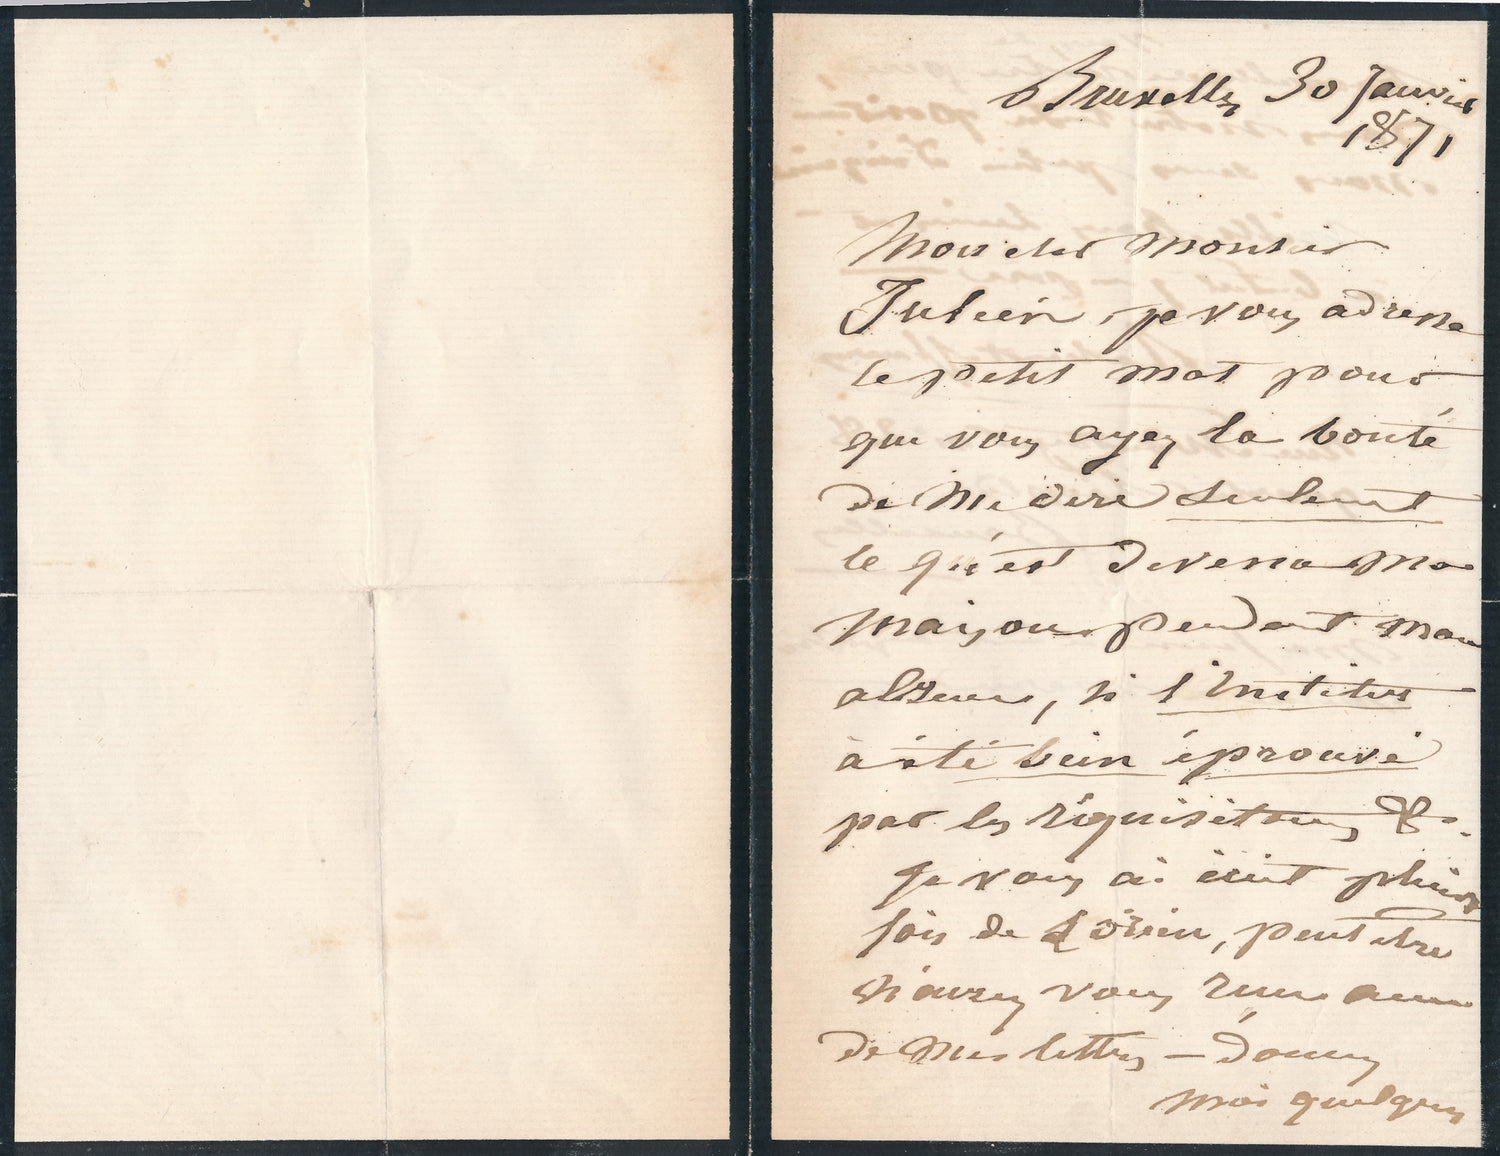 Bruxelles 30 Janvier
1871
Mon cher Monsieur
Julien, je vous adresse
ce petit mot pour
que vous ayez la bonté
de me dire seulement
ce qu'est devenu ma
maison pendant mon
absence, si l'Institut
à été bien éprouvé
par les réquisitions &c.
Je vous ai écrit plusieurs
fois de, peut être
n'avez vous reçu aucune
de mes lettres — donnez
moi quelques